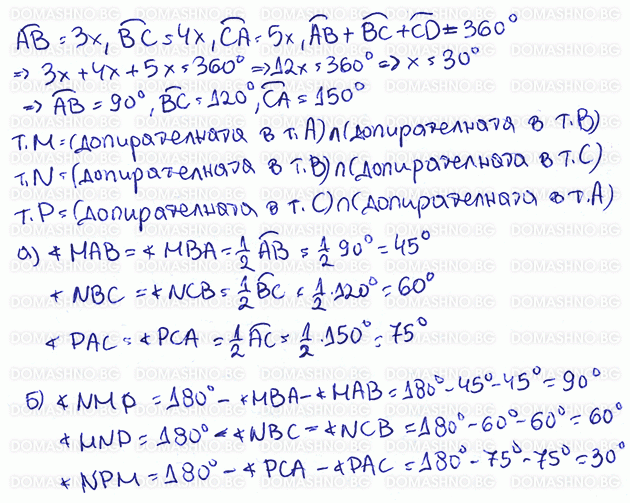 DOMASHNO.BG DOMASHNO.BG DOMASHNO.BG DOMASHNO.BG
A͡B = 3x, B͡C = 4x, C͡A = 5x, A͡B + B͡C + C͡D = 360°
=> 3x + 4x + 5x = 360° => 12x = 360° => x = 30°
=> A͡B = 90°, B͡C = 120°, C͡A = 150°
т.М = (допирателната в т.А) ∩ (допирателната в т.В)
т.N = (допирателната в т.В) ∩ (допирателната в т.С)
т.Р = (допирателната в т.С) ∩ (допирателната в т.А)
а) ∢ MAB = ∢ MBA = 1/2 A͡B = 1/2 90° = 45°
∢ NBC = ∢ NCB = 1/2 B͡C = 1/2 . 120° = 60°
∢ PAC = ∢ PCA = 1/2 A͡C = 1/2 . 150° = 75°
б) ∢ NMP = 180° - ∢MBA - ∢ MAB = 180° - 45° - 45° = 90°
∢ MNP = 180° - ∢ NBC - ∢ NCB = 180° - 60° - 60° = 60°
∢ NPM = 180° - ∢ PCA - ∢PAC = 180° - 75° - 75° = 30°